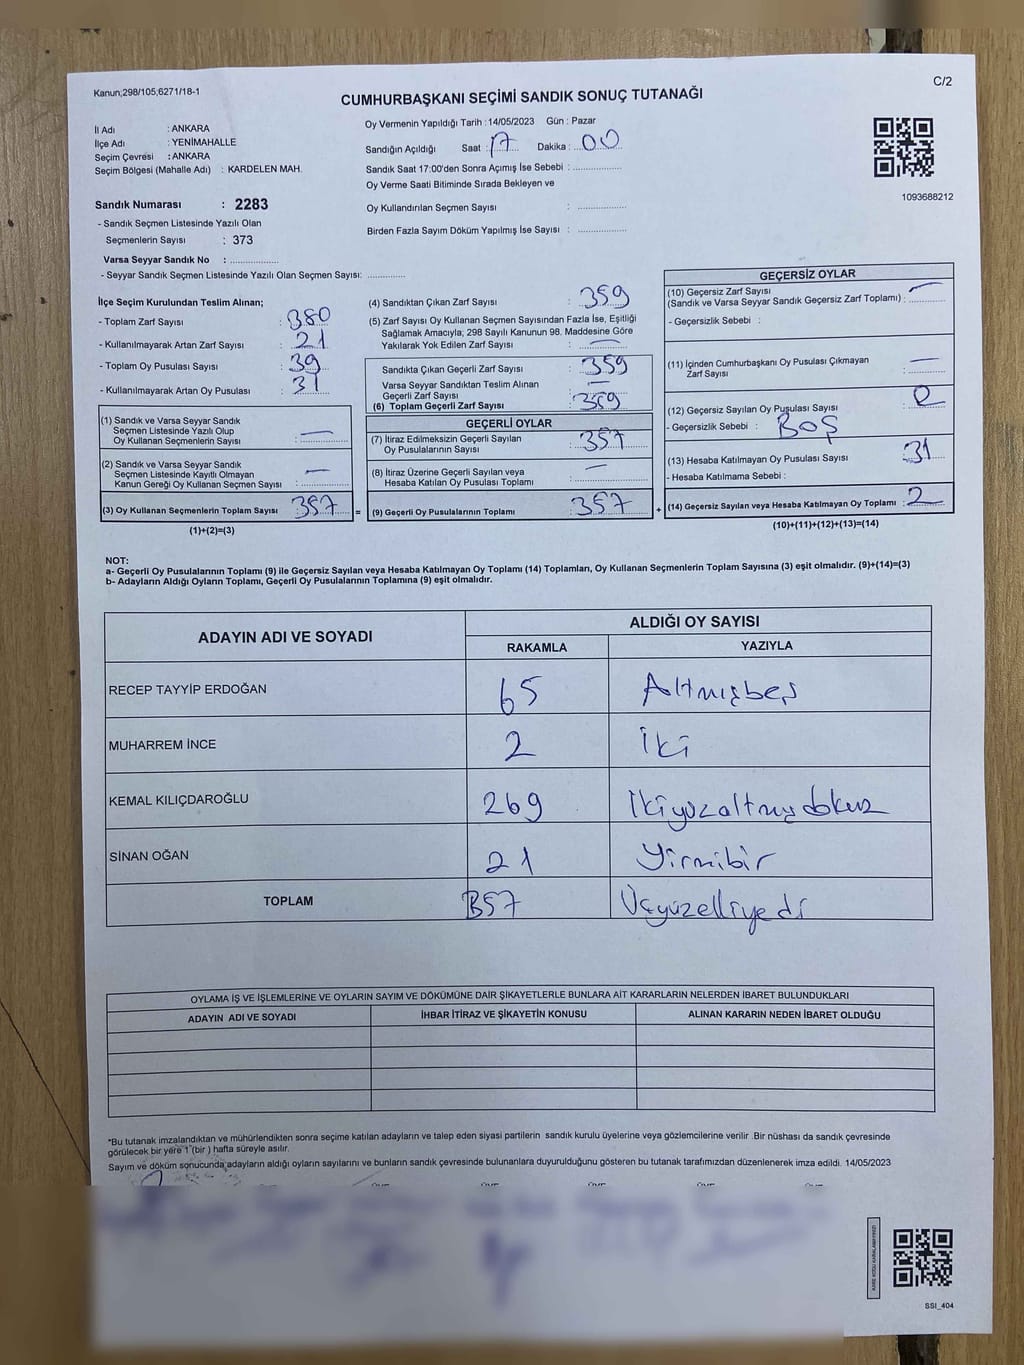 Kanun;298/105;6271/18-1
C/2
CUMHURBAŞKANI SEÇİMİ SANDIK SONUÇ TUTANAĞI
İl Adı : ANKARA
İlçe Adı : YENİMAHALLE
Seçim Çevresi : ANKARA
Seçim Bölgesi (Mahalle Adı) : KARDELEN MAH.
Sandık Numarası : 2283
- Sandık Seçmen Listesinde Yazılı Olan
Seçmenlerin Sayısı : 373
Varsa Seyyar Sandık No : ..................
- Seyyar Sandık Seçmen Listesinde Yazılı Olan Seçmen Sayısı: ..............
Oy Vermenin Yapıldığı Tarih : 14/05/2023 Gün : Pazar
Sandığın Açıldığı Saat : 17 Dakika : 00
Sandık Saat 17:00'den Sonra Açımış İse Sebebi : ..................
Oy Verme Saati Bitiminde Sırada Bekleyen ve
Oy Kullandırılan Seçmen Sayısı : ..................
Birden Fazla Sayım Döküm Yapılmış İse Sayısı : ..................
1093688212
İlçe Seçim Kurulundan Teslim Alınan;
- Toplam Zarf Sayısı : 380
- Kullanılmayarak Artan Zarf Sayısı : 21
- Toplam Oy Pusulası Sayısı : 39
- Kullanılmayarak Artan Oy Pusulası : 31
(1) Sandık ve Varsa Seyyar Sandık
Seçmen Listesinde Yazılı Olup
Oy Kullanan Seçmenlerin Sayısı : —
(2) Sandık ve Varsa Seyyar Sandık
Seçmen Listesinde Kayıtlı Olmayan
Kanun Gereği Oy Kullanan Seçmen Sayısı : —
(3) Oy Kullanan Seçmenlerin Toplam Sayısı : 357
(1)+(2)=(3)
(4) Sandıktan Çıkan Zarf Sayısı : 359
(5) Zarf Sayısı Oy Kullanan Seçmen Sayısından Fazla İse, Eşitliği
Sağlamak Amacıyla; 298 Sayılı Kanunun 98. Maddesine Göre
Yakılarak Yok Edilen Zarf Sayısı : —
Sandıkta Çıkan Geçerli Zarf Sayısı : 359
Varsa Seyyar Sandıktan Teslim Alınan
Geçerli Zarf Sayısı : —
(6) Toplam Geçerli Zarf Sayısı : 359
GEÇERLİ OYLAR
(7) İtiraz Edilmeksizin Geçerli Sayılan
Oy Pusulalarının Sayısı : 357
(8) İtiraz Üzerine Geçerli Sayılan veya
Hesaba Katılan Oy Pusulası Toplamı : —
= (9) Geçerli Oy Pusulalarının Toplamı : 357
GEÇERSİZ OYLAR
(10) Geçersiz Zarf Sayısı
(Sandık ve Varsa Seyyar Sandık Geçersiz Zarf Toplamı) : —
- Geçersizlik Sebebi :
(11) İçinden Cumhurbaşkanı Oy Pusulası Çıkmayan
Zarf Sayısı : —
(12) Geçersiz Sayılan Oy Pusulası Sayısı : 2
- Geçersizlik Sebebi : BOŞ
(13) Hesaba Katılmayan Oy Pusulası Sayısı : 31
- Hesaba Katılmama Sebebi :
+ (14) Geçersiz Sayılan veya Hesaba Katılmayan Oy Toplamı : 2
(10)+(11)+(12)+(13)=(14)
NOT:
a- Geçerli Oy Pusulalarının Toplamı (9) ile Geçersiz Sayılan veya Hesaba Katılmayan Oy Toplamı (14) Toplamları, Oy Kullanan Seçmenlerin Toplam Sayısına (3) eşit olmalıdır. (9)+(14)=(3)
b- Adayların Aldığı Oyların Toplamı, Geçerli Oy Pusulalarının Toplamına (9) eşit olmalıdır.
ADAYIN ADI VE SOYADI ALDIĞI OY SAYISI
RAKAMLA YAZIYLA
RECEP TAYYİP ERDOĞAN 65 Altmışbeş
MUHARREM İNCE 2 İki
KEMAL KILIÇDAROĞLU 269 İkiyüzaltmışdokuz
SİNAN OĞAN 21 Yirmibir
TOPLAM 357 Üçyüzelliyedi
OYLAMA İŞ VE İŞLEMLERİNE VE OYLARIN SAYIM VE DÖKÜMÜNE DAİR ŞİKAYETLERLE BUNLARA AİT KARARLARIN NELERDEN İBARET BULUNDUKLARI
ADAYIN ADI VE SOYADI İHBAR İTİRAZ VE ŞİKAYETİN KONUSU ALINAN KARARIN NEDEN İBARET OLDUĞU
*Bu tutanak imzalandıktan ve mühürlendikten sonra seçime katılan adayların ve talep eden siyasi partilerin sandık kurulu üyelerine veya gözlemcilerine verilir .Bir nüshası da sandık çevresinde
görülecek bir yere 1 (bir ) hafta süreyle asılır.
Sayım ve döküm sonucunda adayların aldığı oyların sayılarını ve bunların sandık çevresinde bulunanlara duyurulduğunu gösteren bu tutanak tarafımızdan düzenlenerek imza edildi. 14/05/2023
SSI_404